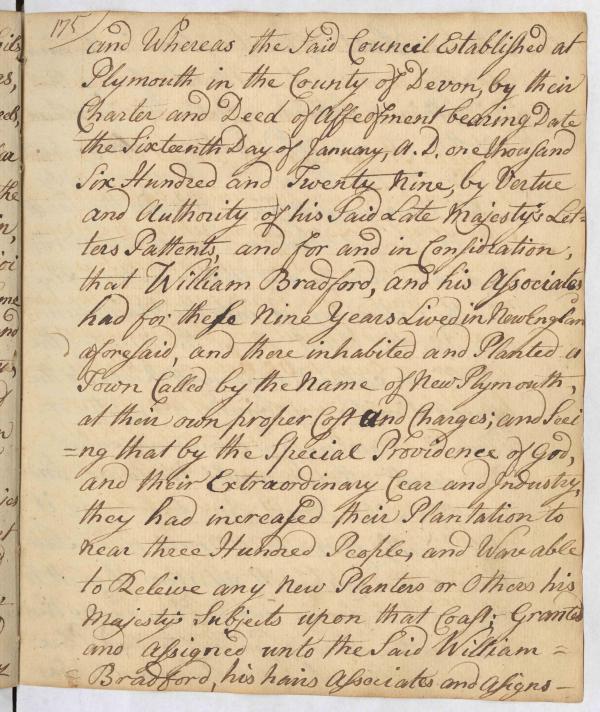 175
and Whereas the Said Council Established at
Plymouth in the County of Devon, by their
Charter and Deed of Affeofment bearing Date
the Sixteenth Day of January, A.D. one thousand
Six Hundred and Twenty Nine, by Vertue
and Authority of his Said Late Majesty's Let=
ters Pattents, and for and in Considration,
that William Bradford, and his Associates
had for these Nine Years Lived in New Englan
d aforesaid, and there inhabited and Planted a
Town Called by the Name of New Plymouth,
at their own proper Cost and Charges; and Seei
=ng that by the Special Providence of God,
and their Extraordinary Cear and Industry,
they had increased their Plantation to
near three Hundred People, and Ware able
to Releive any New Planters or Others his
Majestys Subjects upon that Coast; Granted
and assigned unto the Said William =
Bradford, his hairs Associates and Asigns -